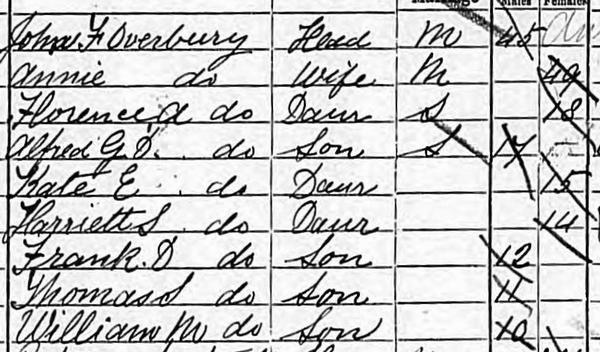 Males Females
John F Overbury Head M 45
Annie do Wife M 49
Florence A do Daur S 18
Alfred G D. do Son S 17
Kate E do Daur 15
Harriett S do Daur 14
Frank. D do Son 12
Thomas S do Son 11
William M do Son 10